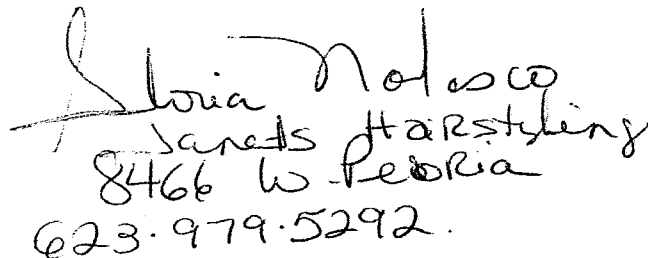 Gloria Nolasco
Janets Hairstyling
8466 W. Peoria
623.979.5292.